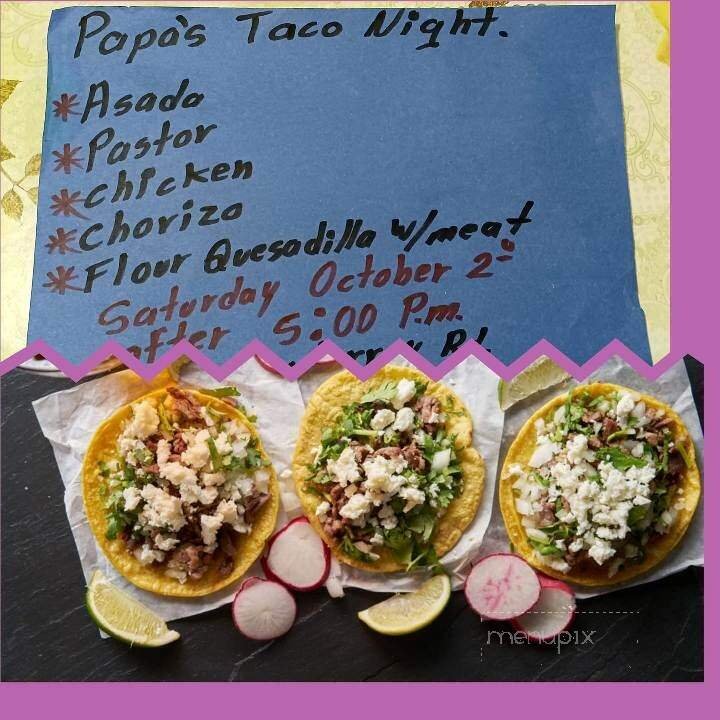 Papa's Taco Night.
*Asada
*Pastor
*Chicken
*Chorizo
*Flour Quesadilla w/meat
Saturday October 2ⁿᵈ
after 5:00 P.m.
Rd.
menupix